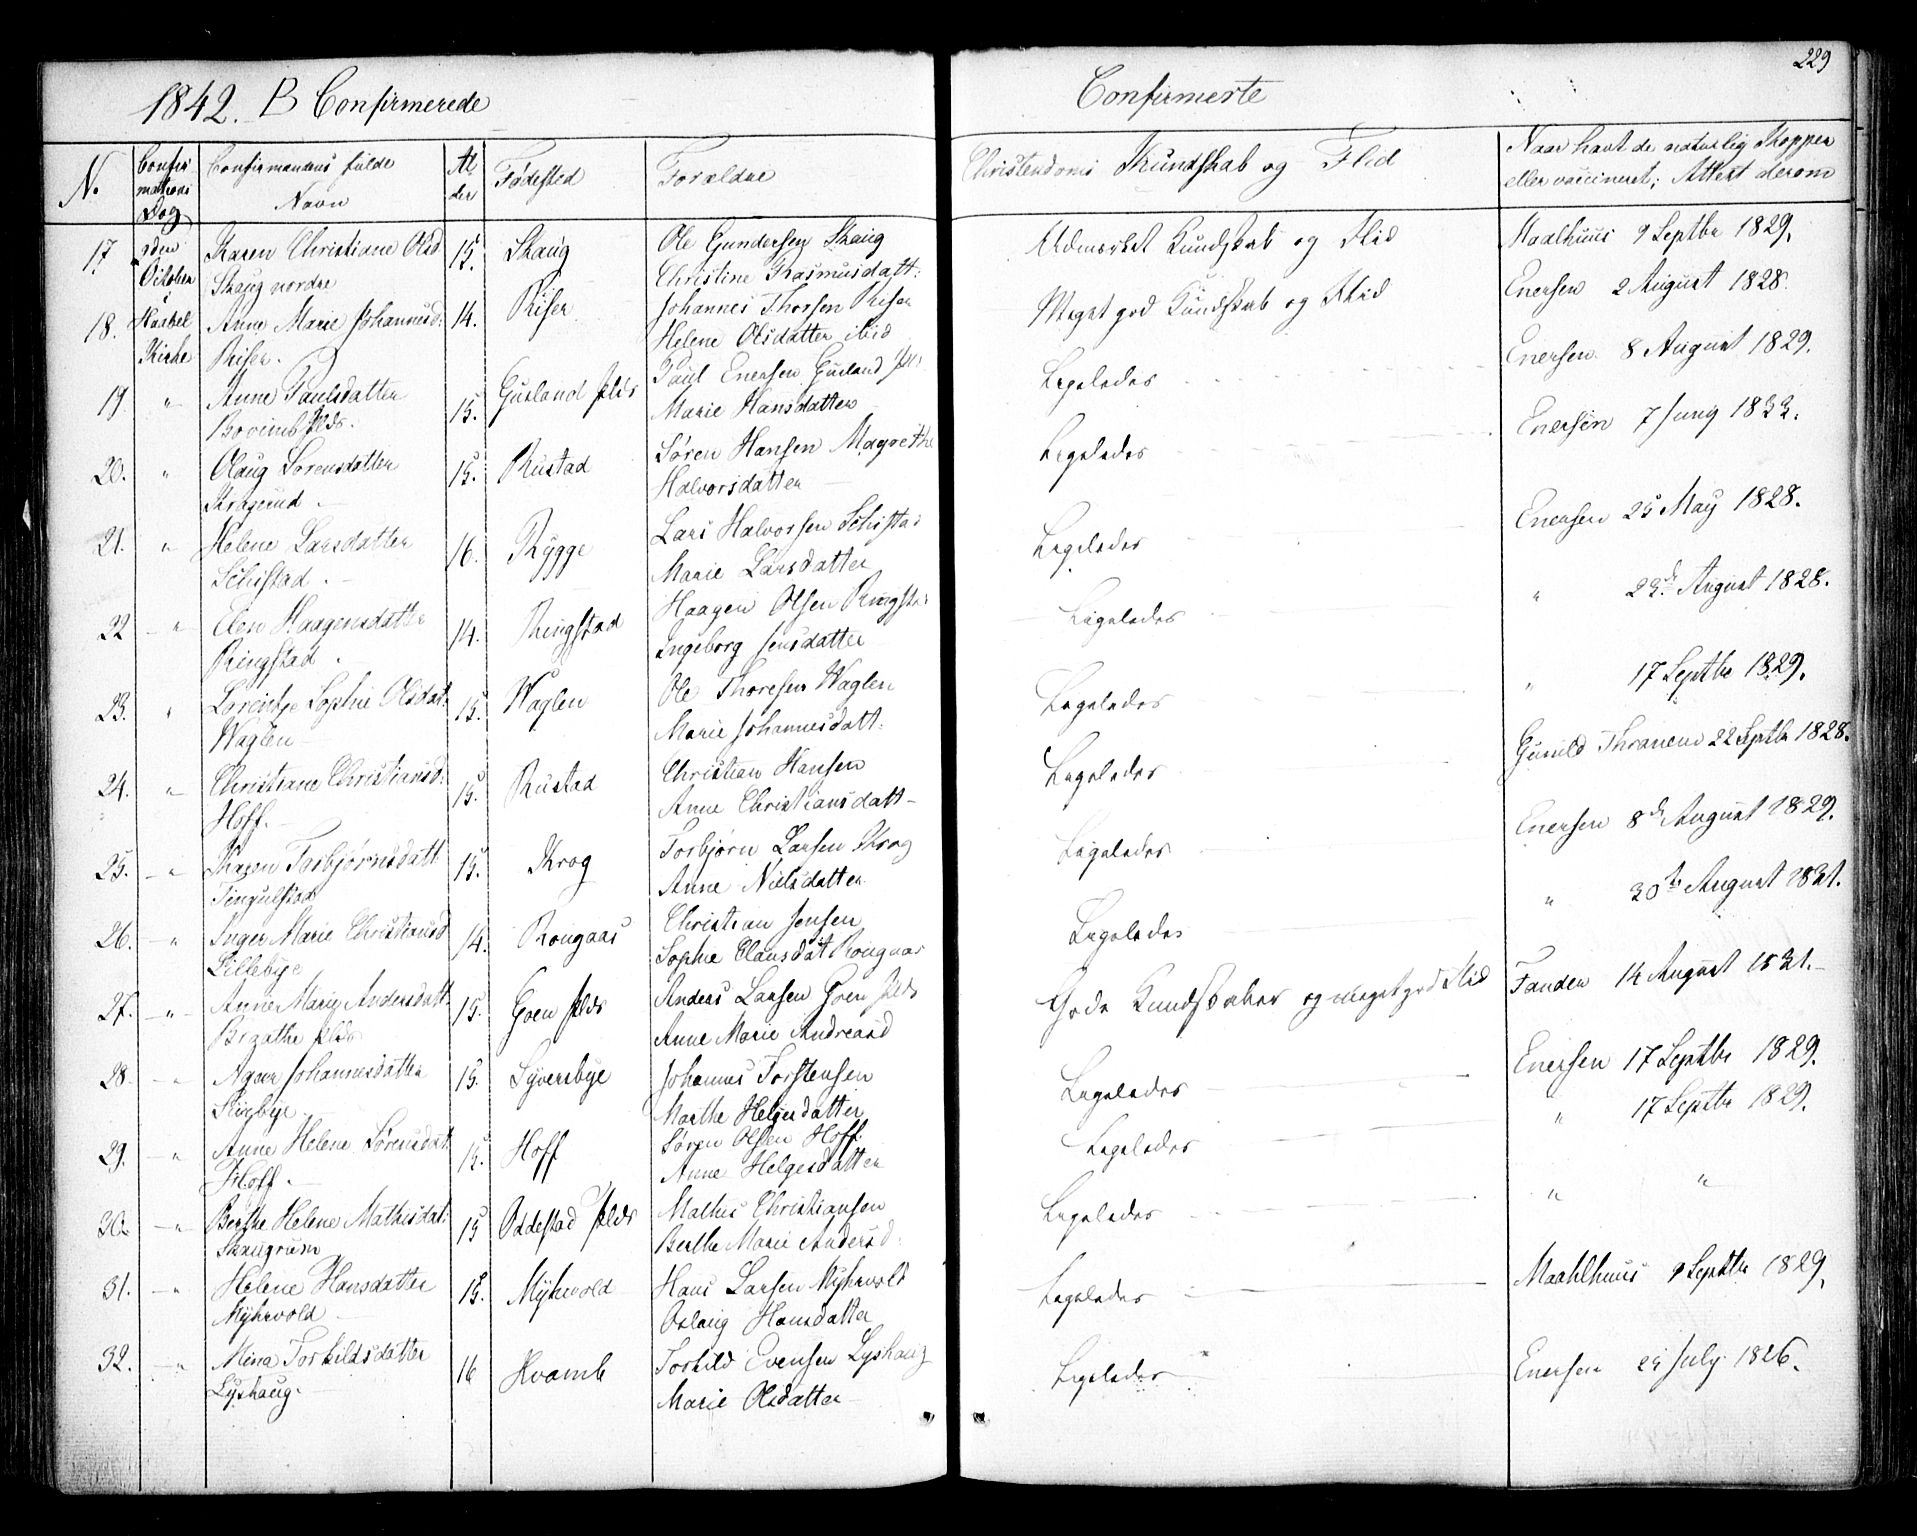 229
1842. B Confirmerede
Confirmerte
N. Confirmations Dag
Confirmandens fulde Navn
Alder
Fødested
Forældre
Christendoms Kundskab og Flid
Naar havt de naturlig Kopper
eller vaccineret; Attest derom
17. 2den October Karen Christiane Olsd 15. Skaug Ole Gundersen Skaug Udmærket Kundskab og Flid Maalhuus 9 Septbr 1829.
Skaug nordre Christine Rasmusdatt:
18. Kirke Anne Marie Johannesd: 14. Riser Johannes Thorsen Riser Meget god Kundskab og Flid Enersen 2 August 1828.
Riser. Helene Olsdatter ibid
19. " Anne Paulsdatter 15. Gusland Paul Enersen Gusland Ligeledes Enersen 8 August 1829.
Marie Hansdatter
20. " Olaug Sørensdatter 15. Rustad Søren Hansen Magrethe Ligeledes Enersen 7 Juny 1833.
Kragerud Halvorsdatter
21. " Helene Larsdatter 16. Rygge Lars Halvorsen Schistad Ligeledes Enersen 25 May 1828.
Schistad. Marie Larsdatter
22 " Elen Haagensdatter 14. Ringstad Haagen Olsen Ringstad Ligeledes " 23de August 1828.
Ringstad. Ingeborg Jensdatter
23. " Lorentze Sophie Olsdat 15. Waglen Ole Thoresen Waglen Ligeledes " 17 Septbr 1829.
Waglen Marie Johannesdatt:
24. " Christiane Christiansd: 15. Rustad Christian Hansen Ligeledes Gunild Thranem 22 Septbr 1828.
Hoff. Anne Christiansdatt
25. " Karen Torbjørnsdatt 15. Krog Torbjørn Larsen Krog Ligeledes Enersen 8de August 1829.
Tingulstad Anne Nielsdatter
26. " Inger Marie Christiansd 14. Rongaas Christian Jensen Ligeledes " 30te August 1831.
Lillebye Sophie Clausdat Rongaas
27. " Anne Marie Andersdatt. 15. Goen Anders Larsen Goen Gode Kundskaber og meget god Flid Fanden 14 August 1831.
Anne Marie Andreasd
28. " Johannesdatter 15. Syversbye Johannes Torstensen Ligeledes Enersen 17 Septbr 1829.
Marthe Helgesdatter
29. " Anne Helene Sørensdat 15. Hoff Søren Olsen Hoff. Ligeledes " 17 Septbr 1829.
Hoff. Anne Helgesdatter
30. " Berthe Helene Mathisdat: 15 Mathis Christiansen Ligeledes " "
Skaugrum Berthe Marie Andersd:
31. " Helene Hansdatter 15. Myhrvold Hans Larsen Myhrvold Ligeledes Maahlhuus 9 Septbr 1829.
Myhrvold Oslaug Hansdatter
32. " Mina Torkildsdatter 16 Hvamb Torkild Evensen Lyshaug Ligeledes Enersen 25 July 1826.
Lyshaug. Marie Olsdatter